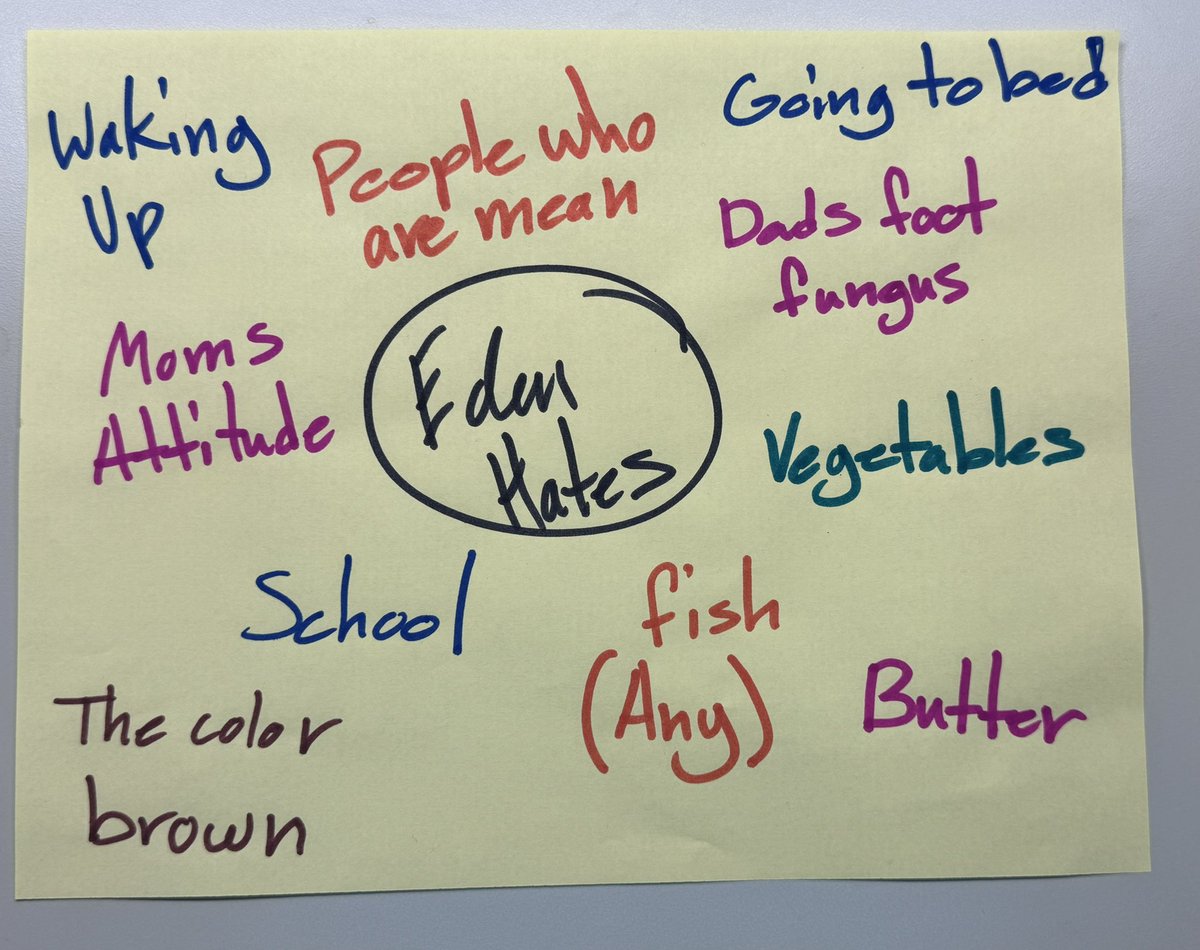 Waking
Up
People who
are mean
Going to bed
Dads foot
fungus
Moms
Attitude
Eden
Hates
Vegetables
School
fish
(Any)
Butter
The color
brown